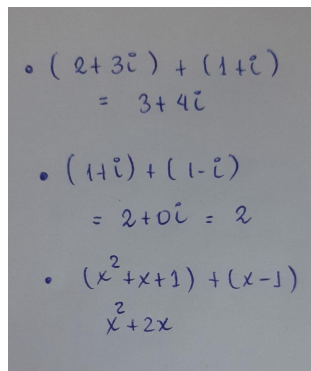 • (2+3i) + (1+i)
= 3+4i
• (1+i) + (1-i)
= 2+0i = 2
• (x²+x+1) + (x-1)
x²+2x